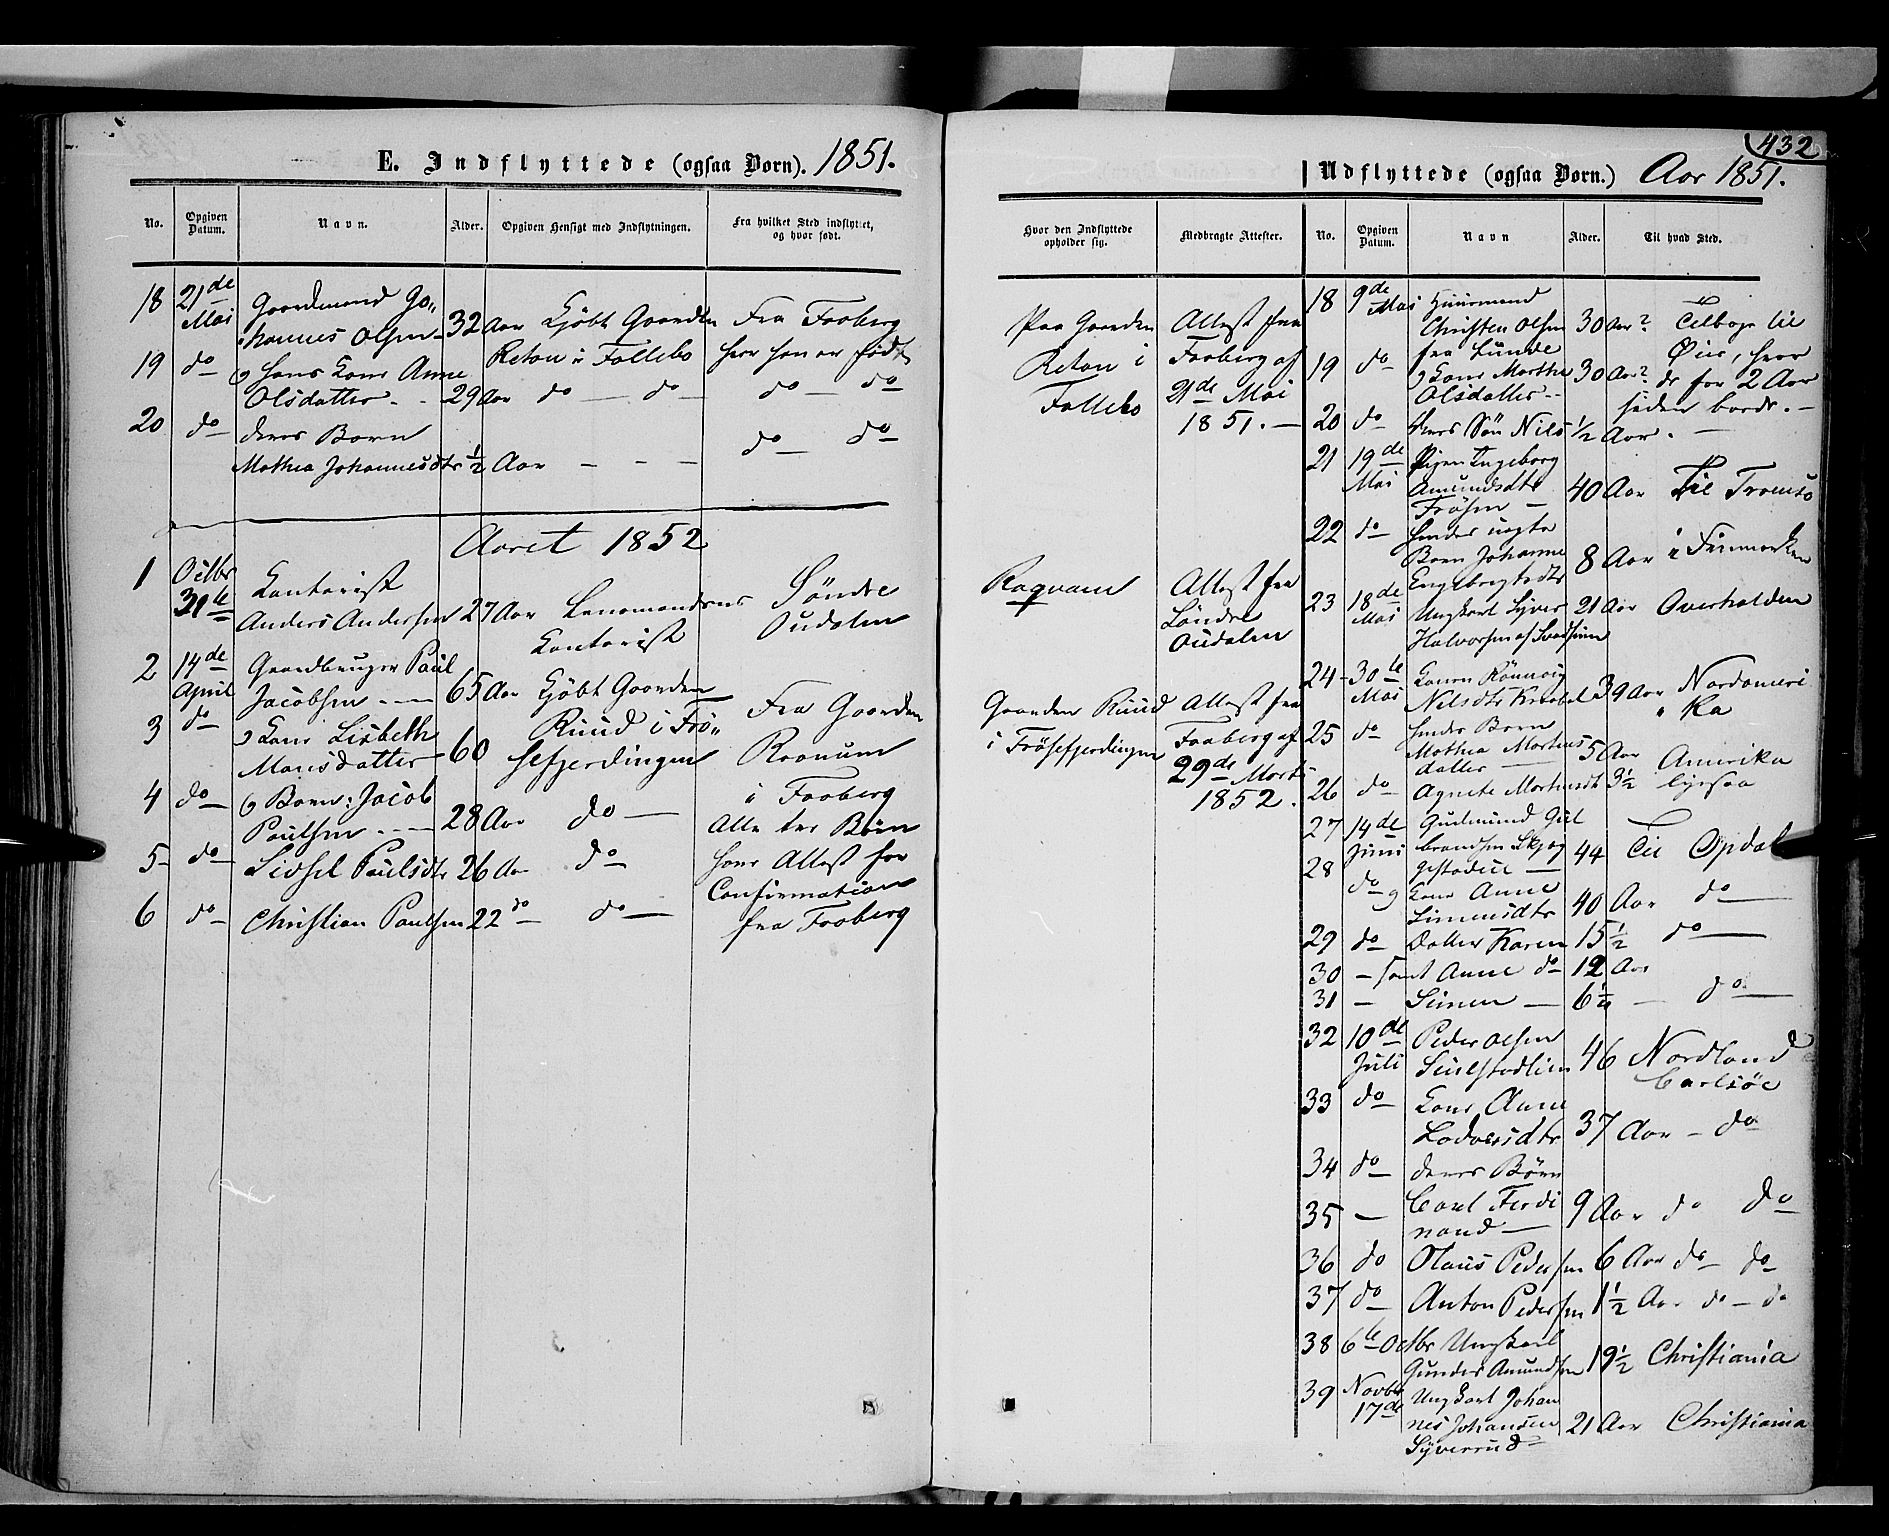 432
E. Indflyttede (ogsaa Børn). 1851.
No.
Opgiven Datum.
Navn.
Alder.
Opgiven Hensigt med Indflytningen.
Fra hvilket Sted indflyttet, og hvor født.
18 21de Mai Gaardmand Jo-
hannes Olsen 32 Aar Kjøbt Gaarden Fra Faaberg
19 do hans Kone Anne
Olsdatter 29 Aar do do do do
20 do deres Barn
Mathea Johannesdtr 1/2 Aar - - - do do
Aaret 1852
1 Kontorist
Anders Andersen 27 Aar Lensmandens Søndre
Kontorist Oudalen
2 14de April Gaardbruger Paul
Jacobsen 65 Aar Kjøbt Gaarden Fra Gaarden
3 do Kone Lisbeth Ruud i Frø-
Monsdatter 60 sefjerdingen
4 do Børn: Jacob i Faaberg
Paulsen 28 Aar do Alle tre Børn
5 do Sidsel Paulsdtr 26 Aar do have Attest for
Confirmation
6 do Christian Paulsen 22 do do fra Faaberg
Udflyttede (ogsaa Børn.) Aar 1851.
Hvor den Indflyttede opholder sig.
Medbragte Attester.
No.
Opgiven Datum.
Navn
Alder.
Til hvad Sted.
Paa Gaarden Attest fra
i Faaberg af
Follebo 21de Mai
1851.
Attest fra
Søndre
Oudalen
Gaarden Ruud Attest fra
i Frøsefjerdingen Faaberg af
29de Marts
1852.
18 9de Mai Huusmand
Christen Olsen 30 Aar? Tilbage til
fra Lunde Øier, hvor
19 do Kone Marthe 30 Aar? de for 2 Aar
Olsdatter siden boede.
20 do deres Søn Nils 1/2 Aar.
21 19de Mai Pigen Ingeborg
Amundsdtr 40 Aar Til Tromsø
Frøsen
22 do hendes uægte
Barn Johanne 8 Aar i Finmarken
Engebregtsdtr
23 18de Mai Ungkarl Syver 21 Aar Overhalden
24 30te Mai Konen Rønnoug
Nilsdtr 39 Aar Nordameri
ka
25 do hendes Børn
Mathea Mortens 5 Aar Amerika
datter
26 do Agnete Mortensdt 3 1/2 ligesaa
27 14de Juni Gudmund Gul
brandsen 44 Til Opdal
28 do Kone Anne
Simensdtr 40 Aar do
29 do Datter Karen 15 1/2 do
30 - samt Anne do 12 Aar
31 - Simen 6 1/2 do
32 10de Juli Peder Olsen
46 Nordland
Carlsöe
33 do Kone Anne
37 Aar do
34 do deres Børn
35 - Carl Ferdi
nand 9 Aar do do
36 do Olaus Pedersen 6 Aar do do
37 do Anton Pedersen 1 1/2 Aar do do
38 6te Octbr Ungkarl
Gunder Amundsen 19 1/2 Christiania
39 Novbr 17de Ungkarl Johan
nes Johansen 21 Aar Christiania
Syverrud